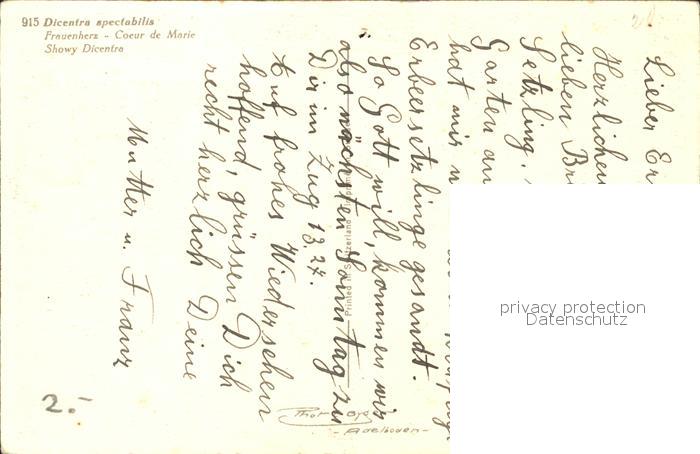 915 Dicentra spectabilis
Frauenherz - Coeur de Marie
Showy Dicentra
Lieber Er
Herzlichen
lieben Br
Setzling.
Garten an
hat mir
Erbeersetzlinge gesandt.
So Gott will, kommen wir
also nächsten Samstag zu
Dir im Zug 13.24.
Auf frohes Wiedersehen
hoffend, grüssen Dich
recht herzlich Deine
Mutter u. Franz
Printed in Switzerland
2.-
- Adelboden -
privacy protection
Datenschutz